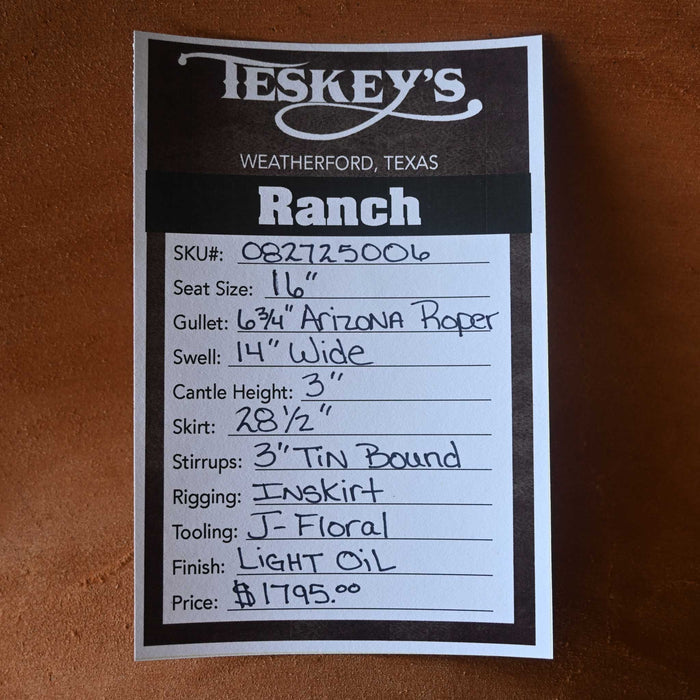 TESKEY'S
WEATHERFORD, TEXAS
Ranch
SKU#: 082725006
Seat Size: 16"
Gullet: 6 3/4" Arizona Roper
Swell: 14" Wide
Cantle Height: 3"
Skirt: 28 1/2"
Stirrups: 3" Tin Bound
Rigging: Inskirt
Tooling: J-Floral
Finish: Light Oil
Price: $1795.00